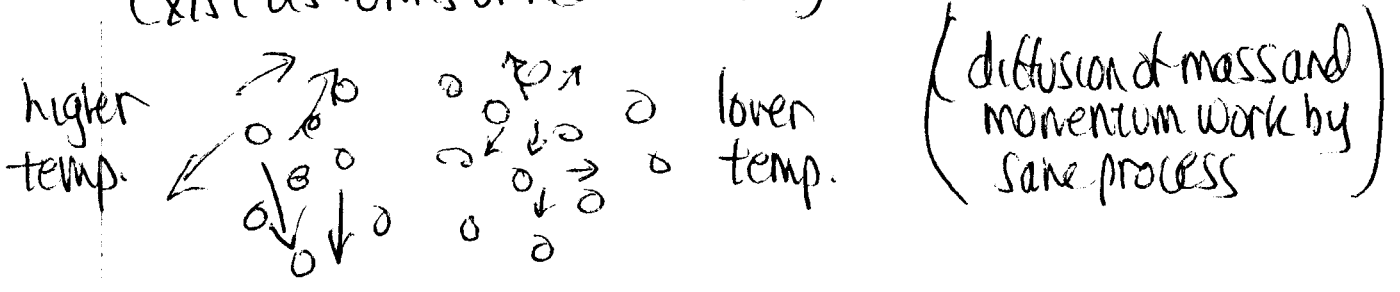 higher
temp.
lower
temp.
(diffusion of mass and
momentum work by
same process)